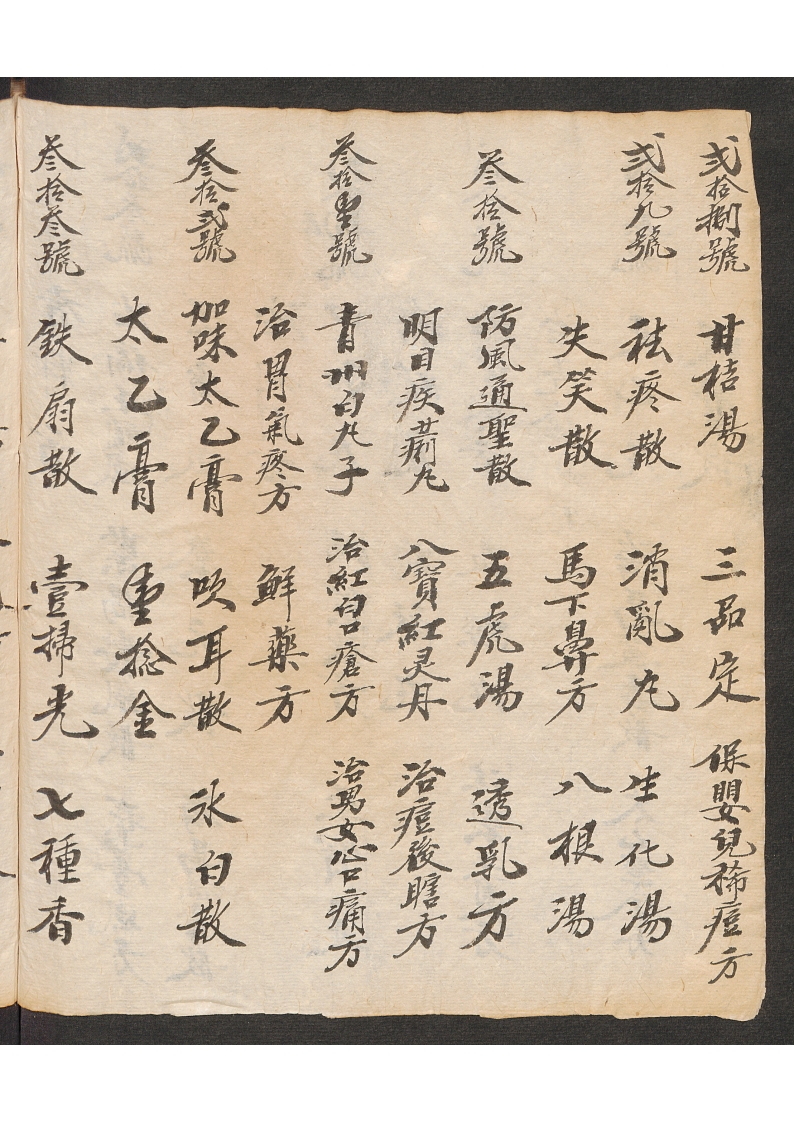 弍拾捌號 甘桔湯 三品定 保嬰兒稀痘方
弍拾九號 祛疼散 消亂丸 生化湯
失笑散 馬下鼻方 八根湯
叁拾號 防風通聖散 五虎湯 透乳方
明目疾丸 八寶紅灵丹 治痘後瞎方
叁拾壹號 青州白丸子 治紅白口瘡方 治男女心口痛方
治胃氣疼方 鮮藥方
叁拾弍號 加味太乙膏 吹耳散 氷白散
太乙膏 壹捻金
叁拾叁號 鉄扇散 壹掃光 七種香